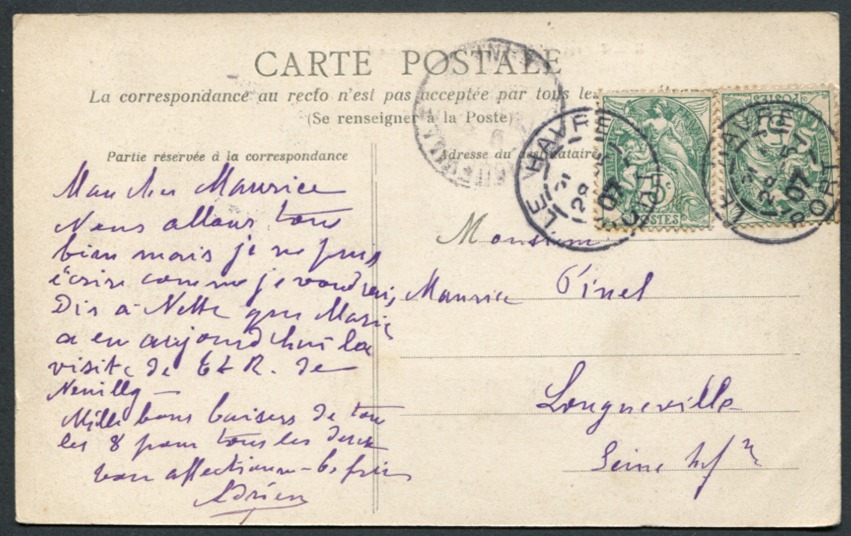 CARTE POSTALE
La correspondance au recto n'est pas acceptée par tous les
(Se renseigner à la Poste)
Partie réservée à la correspondance
Adresse du destinataire
Mon cher Maurice
Nous allons tous
bien mais je ne puis
écrire comme je voudrais,
Dis à Nette que Marie
a eu aujourd'hui la
visite de E & R. de
Neuilly —
Mille bons baisers de tous
les 8 pour tous les deux
ton affectionné
Adrien
Monsieur
Maurice Pinel
Longueville
Seine Infre
LE HAVRE
PORT
07
LE HAVRE
PORT
07
POSTES